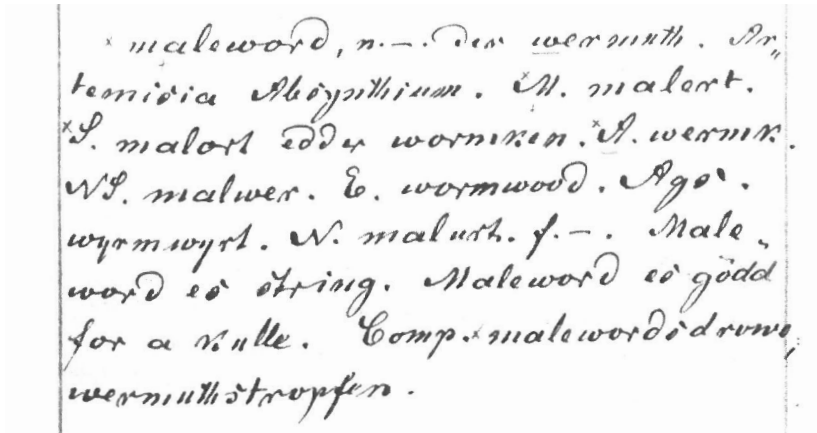 ˣmaleword, n. –. der wermuth. Ar„
temisia Absynthium. ˣM. malert.
ˣS. malort edder wormken. ˣA. wermk.
NS. malwer. E. wormwood. Ags.
wyrmwyrt. N. malurt. f. –. Male„
word es string. Maleword es gödd
for a kulle. Comp. ˣmalewordsdrowe,
wermuthstropfen.